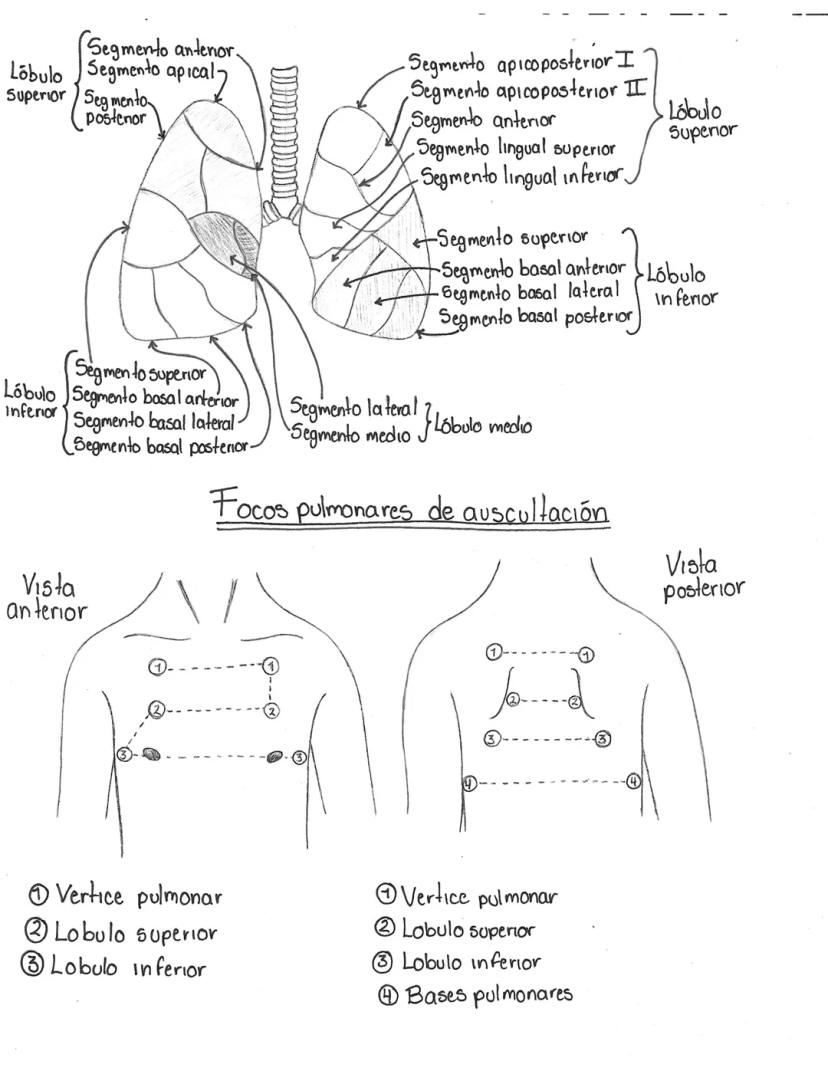 Lóbulo
superior
Segmento anterior
Segmento apical
Segmento
posterior
Segmento apicoposterior I
Segmento apicoposterior II
Segmento anterior
Segmento lingual superior
Segmento lingual inferior
Lóbulo
superior
Segmento superior
Segmento basal anterior
Segmento basal lateral
Segmento basal posterior
Lóbulo
inferior
Lóbulo
inferior
Segmento superior
Segmento basal anterior
Segmento basal lateral
Segmento basal posterior
Segmento lateral
Segmento medio
Lóbulo medio
Focos pulmonares de auscultación
Vista
anterior
1 1
2 2
3 3
Vista
posterior
1 1
2 2
3 3
4 4
① Vertice pulmonar
② Lobulo superior
③ Lobulo inferior
① Vertice pulmonar
② Lobulo superior
③ Lobulo inferior
④ Bases pulmonares